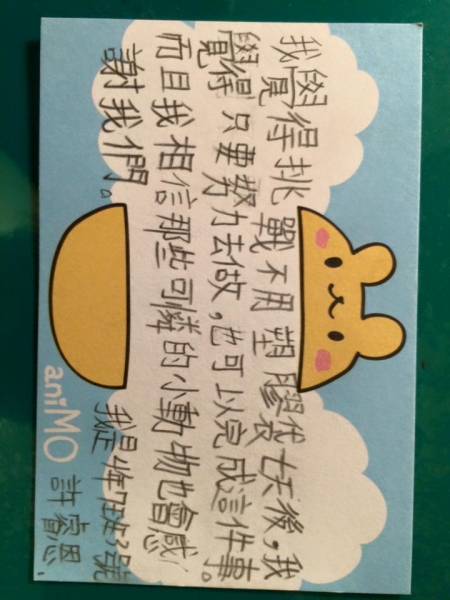 我覺得挑戰不用塑膠袋七天後，我
覺得只要努力去做，也可以完成這件事。
而且我相信那些可憐的小動物也會感
謝我們。
我是年班2號
許睿恩.
aniMO